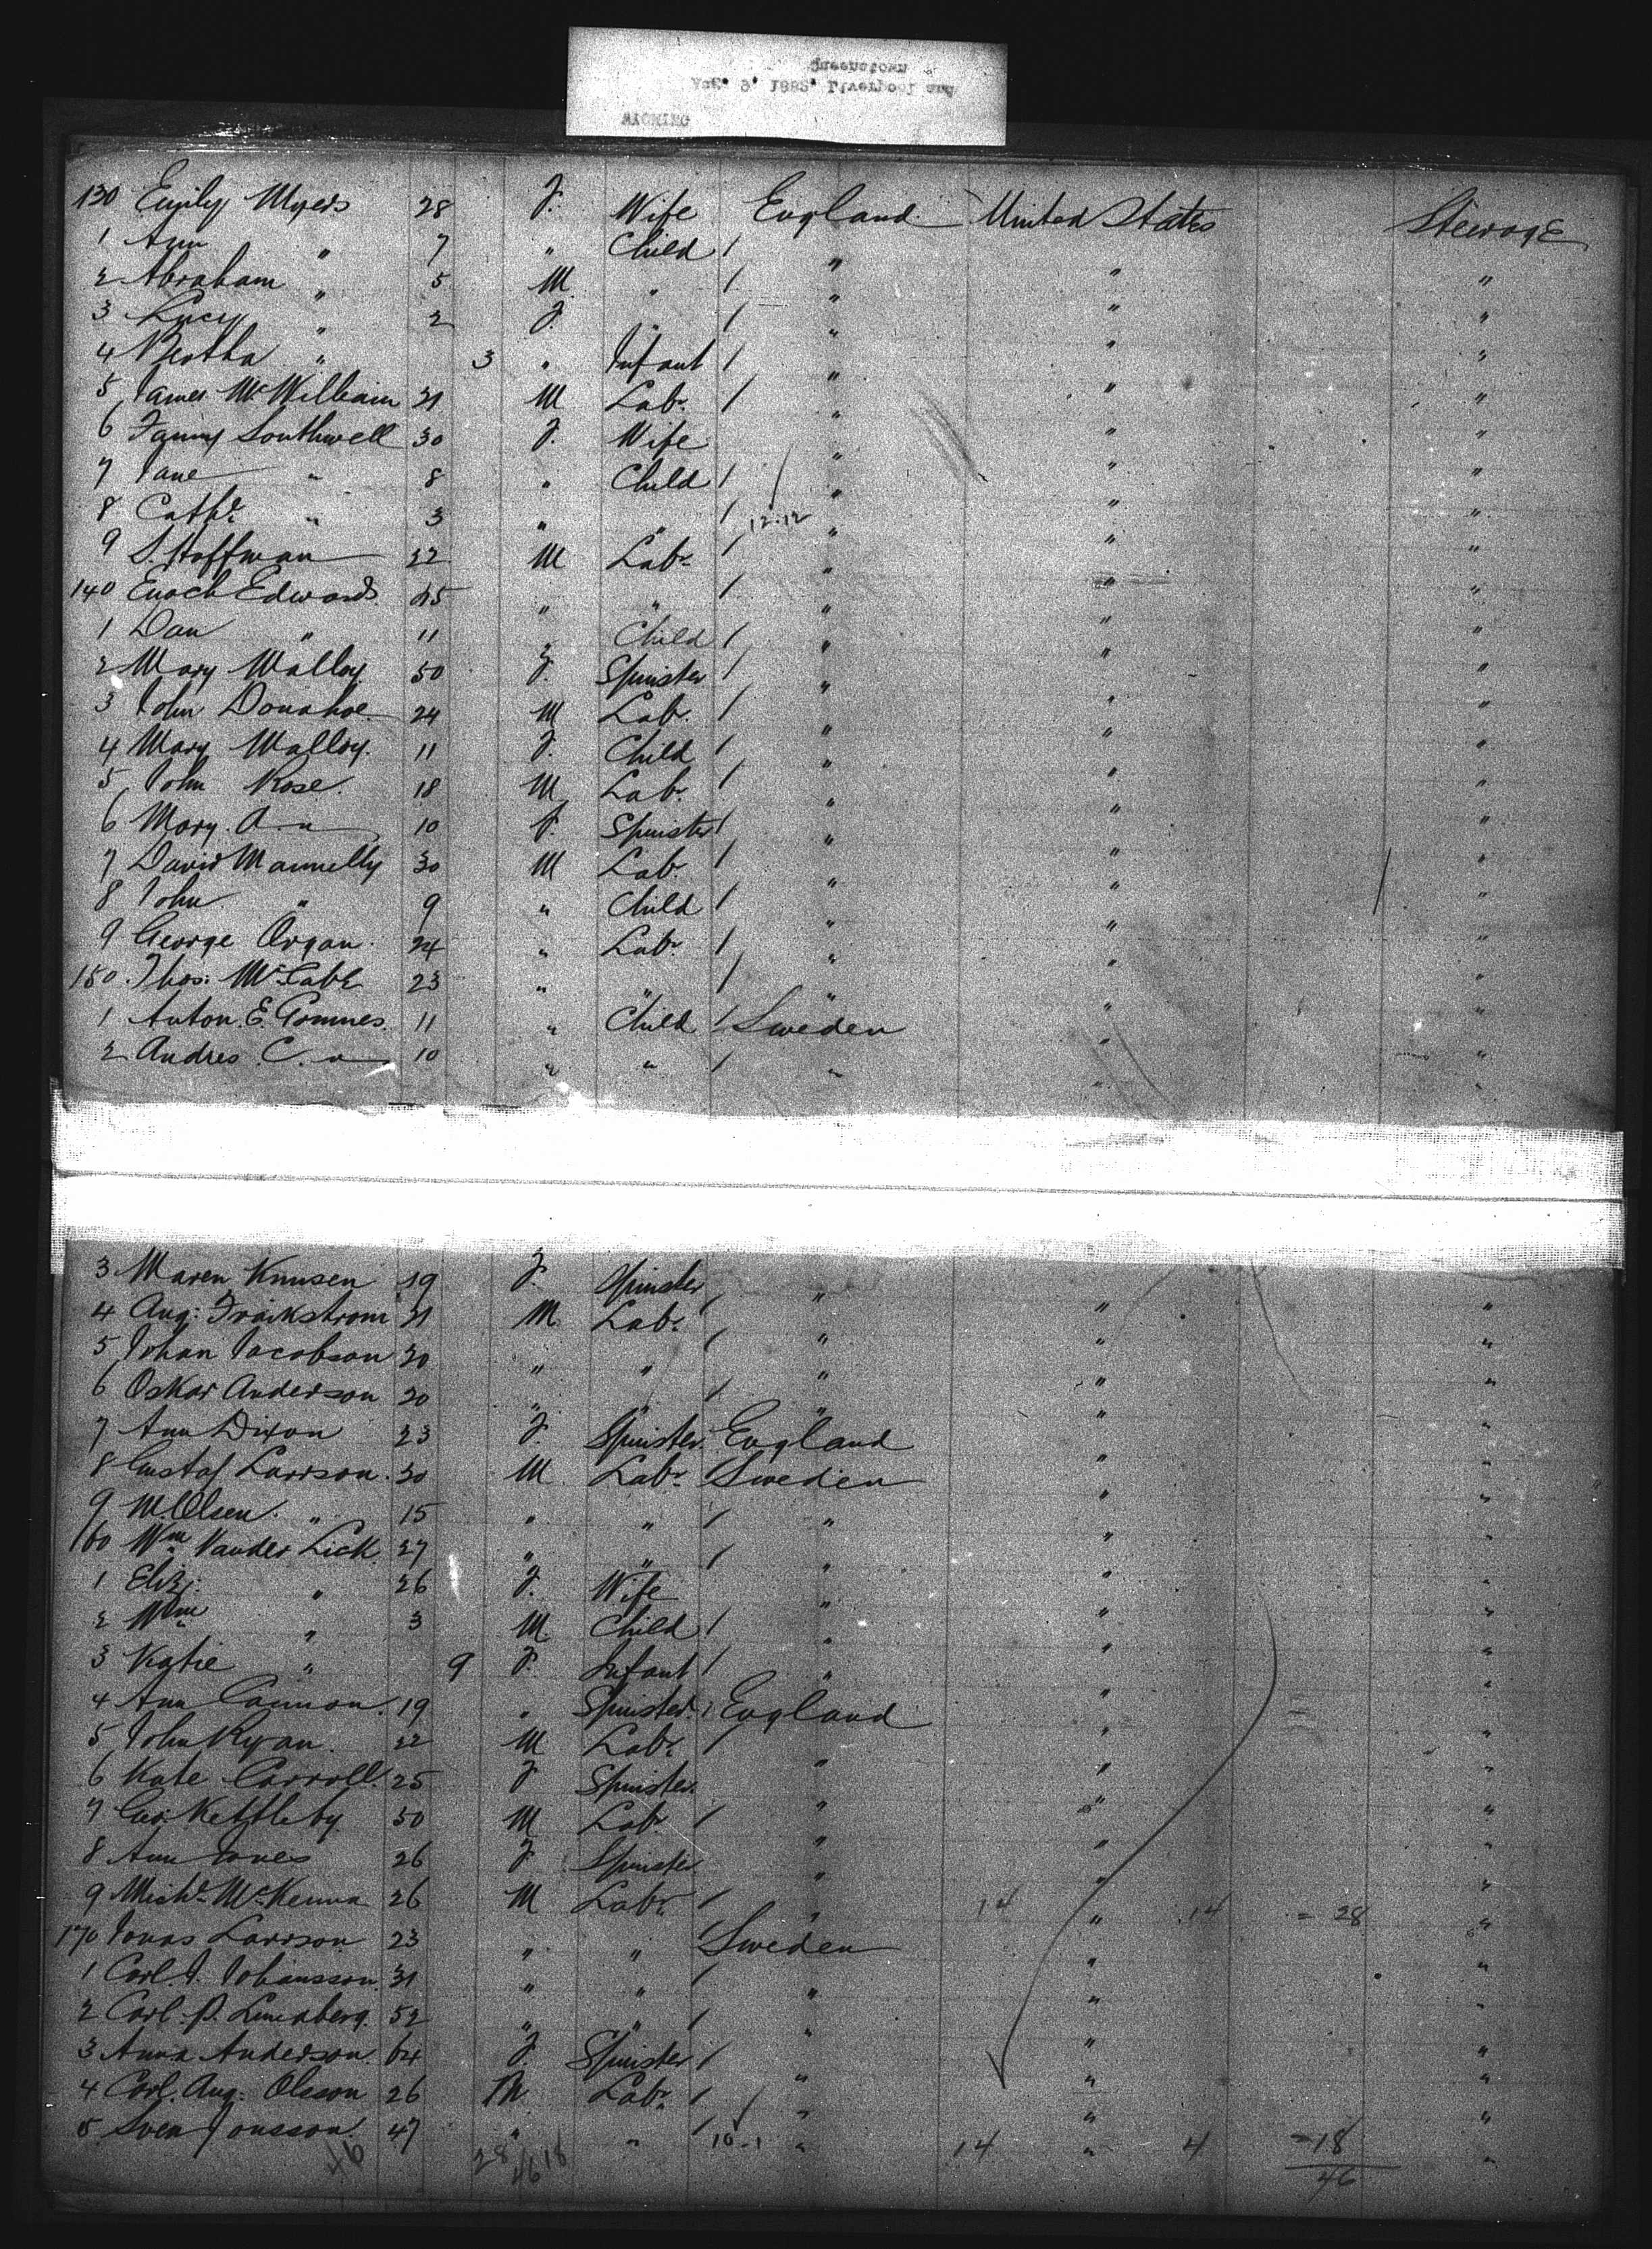 WYOMING
Liverpool and
Queenstown
130 Emily Myers 28 F. Wife England United States Steerage
1 Ann " 7 " Child / " " "
2 Abraham " 5 M. " / " " "
3 Lucy " 2 F. " / " " "
4 Bertha " 3 " Infant / " " "
5 James McWilliam 31 M Labr. / " " "
6 Fanny Southwell 30 F. Wife " " "
7 Jane " 8 " Child / " " "
8 Cathe " 3 " " / 12.12 " " "
9 S. Hoffman 32 M Labr. / " " "
140 Enoch Edwards 45 " " / " " "
1 Dan " 11 " Child / " " "
2 Mary Malloy 50 F. Spinster / " " "
3 John Donahoe 24 M Lab. / " " "
4 Mary Malloy. 11 F. Child / " " "
5 John Rose. 18 M Lab. / " " "
6 Mary. A. " 10 F. Spinster / " " "
7 David Mannelly 30 M Lab. / " " "
8 John " 9 " Child / " " "
9 George Organ. 24 " Labr. / " " "
150. Thos. McCabe 23 " " / " " "
1 Anton. E. 11 " Child / Sweden " "
2 Andres C. " 10 " " / " " "
3 Maren Knusen 19 F. Spinster / " " "
4 Aug. 31 M. Labr. / " " "
5 Johan Jacobson 30 " " / " " "
6 Oskar Anderson 20 " " / " " "
7 Ann Dixon 23 F. Spinster England " "
8 Gustaf Larrson. 30 M Labr. / Sweden " "
9 W. Olsen. " 15 " " / " " "
160 Wm Vander Lick 27 " " / " " "
1 Eliz: " 26 F. Wife " " "
2 Wm " 3 M. Child / " " "
3 Katie " 9 F. Infant / " " "
4 Ann Cannon. 19 " Spinster. England " "
5 John Ryan. 22 M Labr. / " " "
6 Kate Carroll 25 F Spinster. " " "
7 Geo. Kettleby 50 M Labr. / " " "
8 Ann Jones 26 F Spinster " " "
9 Michl. McKenna 26 M Labr. / " 14 " 14 = 28 "
170 Jonas Larrson 23 " " / Sweden " "
1 Carl. J. Johansson 31 " " / " " "
2 Carl. P. 52 " " / " " "
3 Anna Anderson. 64 F. Spinster / " " "
4 Carl. Aug. Olsson 26 M. Labr. / " " "
5 Sven Jonsson. 47 " " / 10-1 " 14 " 4 =18 "
46 28 46 18 46